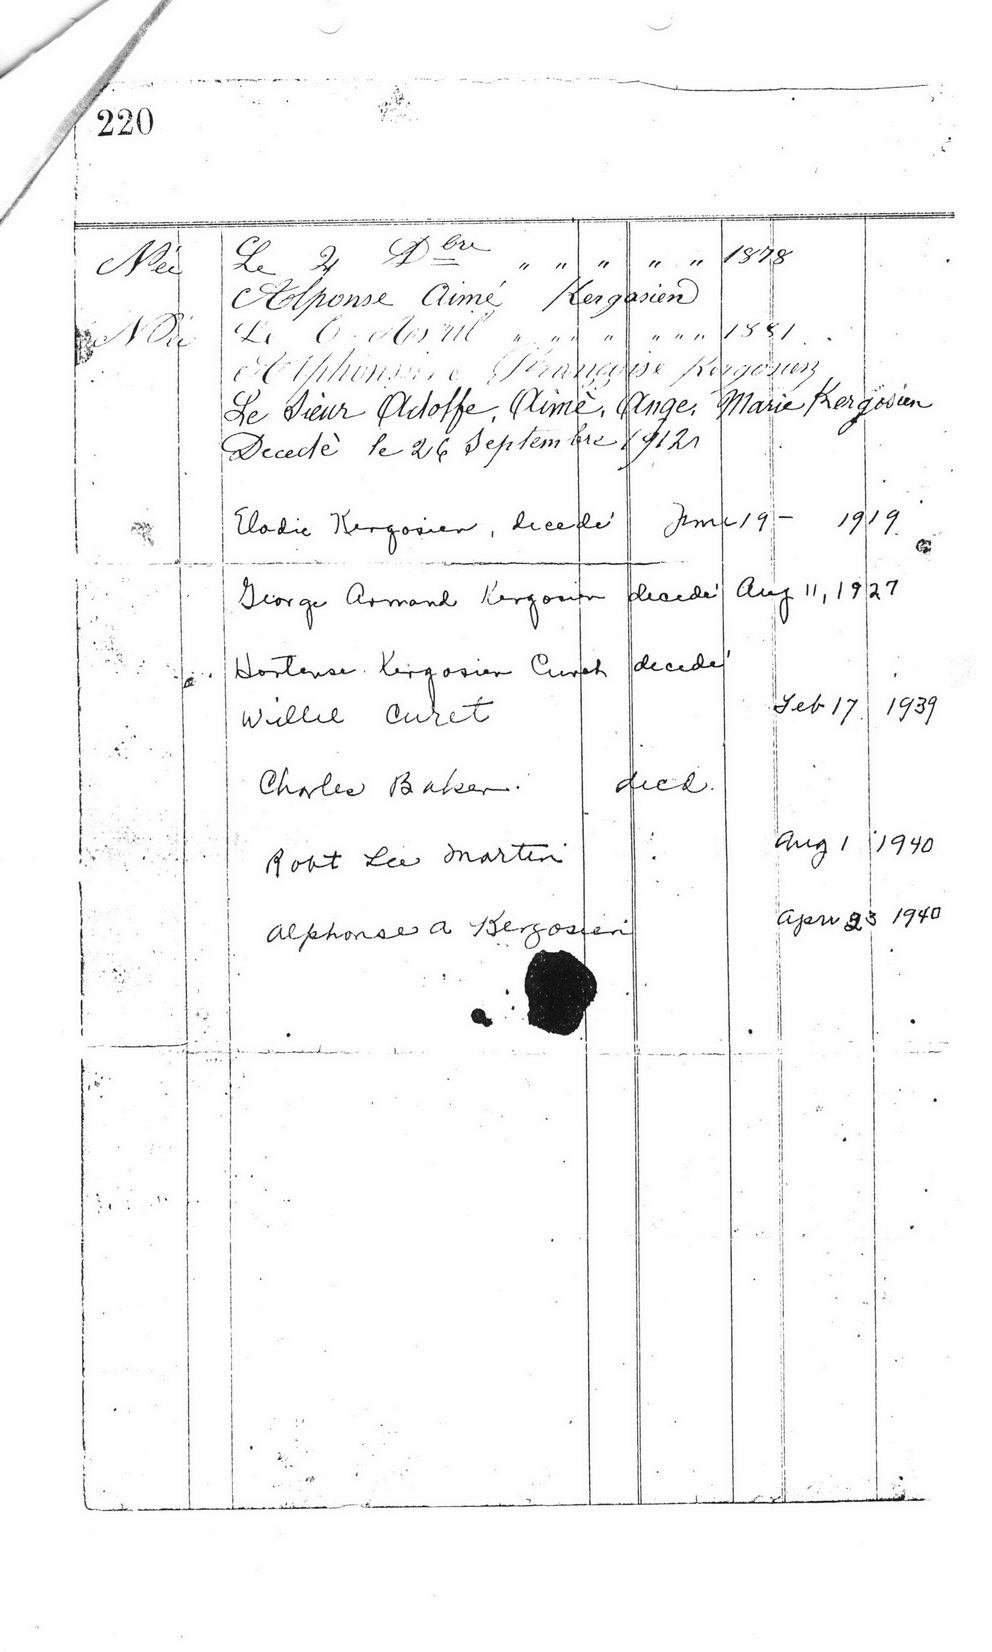 220
Née Le 4 Dbre " " " " " 1878
Alponse Aimé Kergosien
Née Le 6 Avril " " " " " " 1881
Alphonsine Françoise Kergosien
Le Sieur Adolfe, Aimè, Ange, Marie Kergosien
Decedè le 26 Septembre 1912
Elodie Kergosien, decedé June 19 - 1919
George Armand Kergosien decedé Aug 11, 1927
Hortense Kergosien Curet decedé
Willie Curet Feb 17 1939
Charles Baker. died.
Robt Lee Martin Aug 1 1940
Alphonse A Kergosien April 23 1940